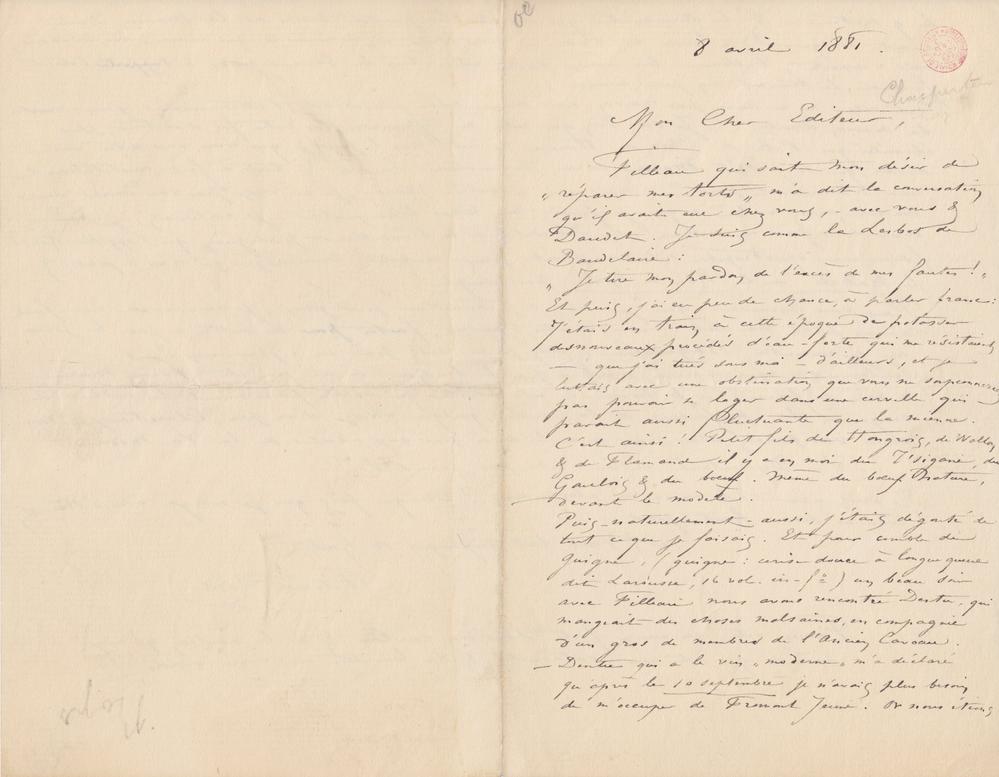 8 avril 1881.
Mon Cher Editeur,
Filleau qui sait mon désir de
"réparer mes torts", m'a dit la conversation
qu'il avait eue chez vous, - avec vous &
Daudet. Je suis comme la Lesbos de
Baudelaire :
"Je tire mon pardon de l'excès de mes fautes !"
Et puis, j'ai eu peu de chance, à parler franc :
J'étais en train, à cette époque de potasser
des nouveaux procédés d'eau-forte qui me résistaient
— que j'ai tués sous moi - d'ailleurs, et je
luttais avec une obstination, que vous ne soupçonneriez
pas pouvoir se loger dans une cervelle qui
parait aussi fluctuante que la mienne.
C'est ainsi ! Petit fils de Hongrois, de Wallon
& de Flamande il y a en moi du Tsigane, du
Gaulois & du bœuf. Même du bœuf Nature,
devant le modèle.
Puis - naturellement - aussi, j'étais dégouté de
tout ce que je faisais. Et pour comble de
guigne, (guigne : cerise douce à longue queue
dit Larousse, 16 vol. in-fº) un beau soir
avec Filleau nous avons rencontré Dentu, qui
mangeait des choses malsaines, en compagnie
d'un gros de membres de l'Ancien Caveau.
— Dentu qui a le vin "moderne" m'a déclaré
qu'après le 10 septembre je n'avais plus besoin
de m'occuper de Fromont Jeune. Or nous étions